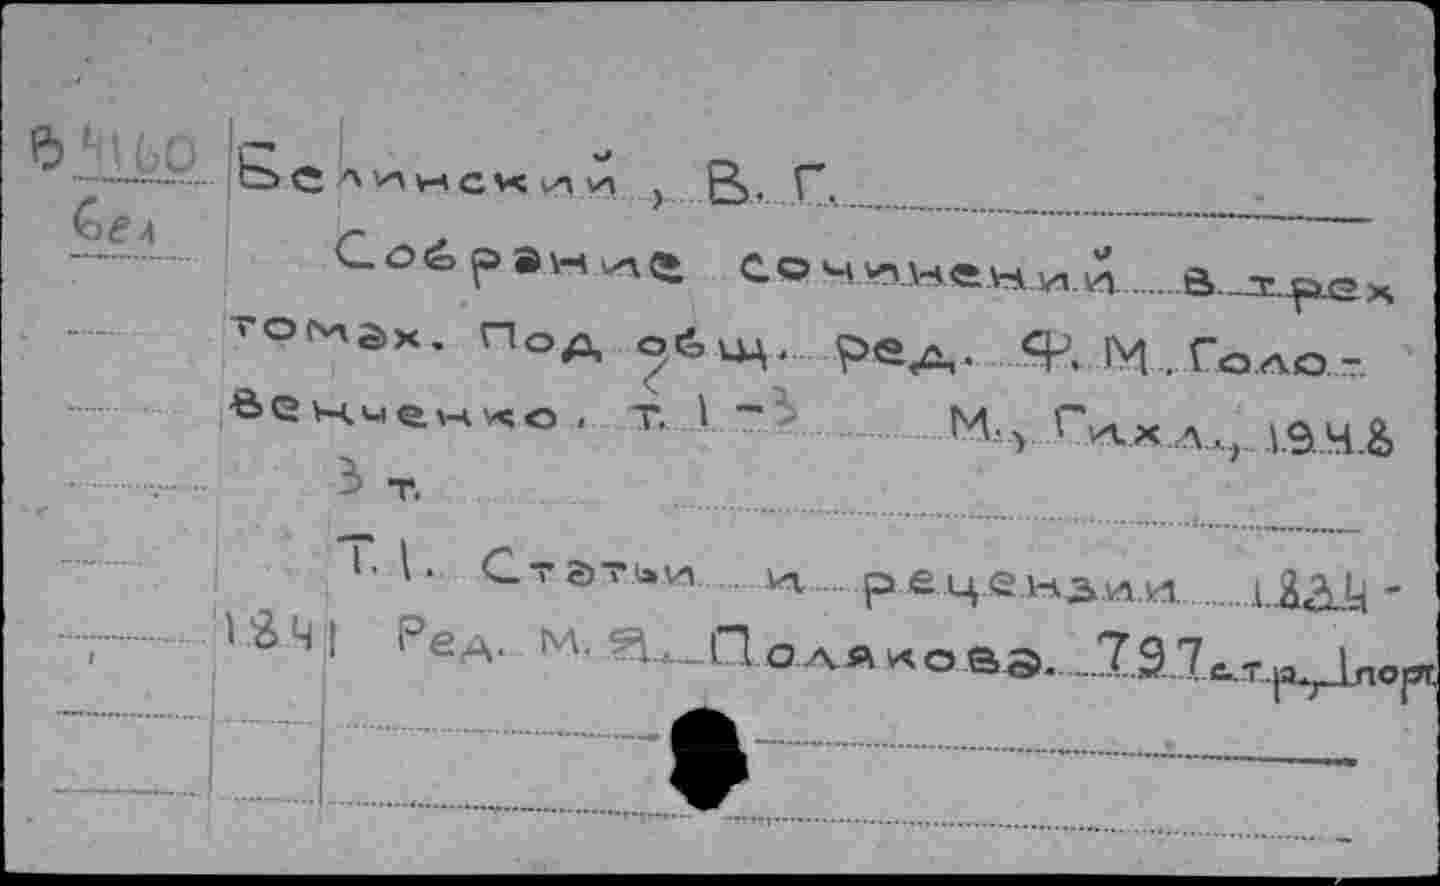 Белинский, В. Г.
Бел
Собрание сочинений в трех
томах. Под общ. ред. Ф. М. Голо-
венченко. Т. 1 - 3 М., Гихл., 1948
3 т.
Т. 1. Статьи и рецензии 1834 -
1841 Ред. М. Я. Полякова. 797 стр., 1 порт.